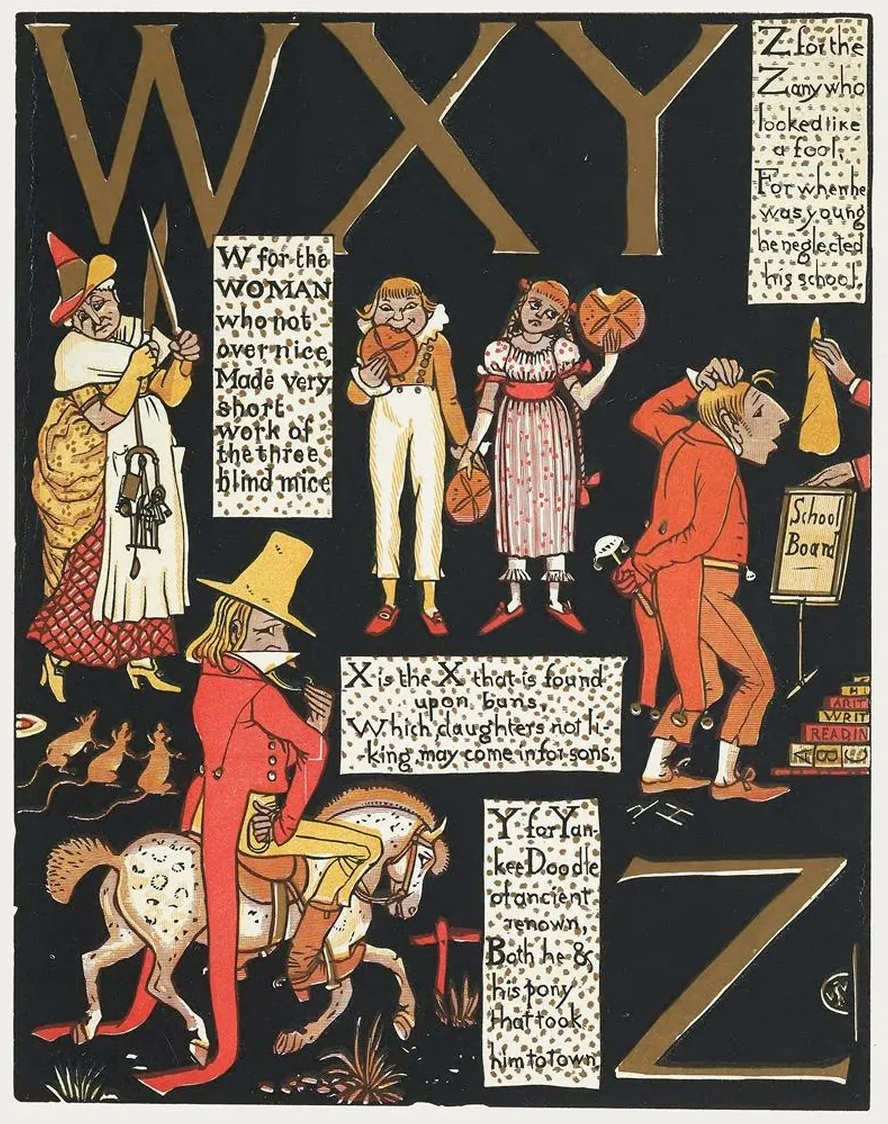 W X Y
W for the
WOMAN
who not
over nice,
Made very
short
work of
the three
blind mice
X is the X that is found
upon buns,
Which, daughters not li-
king, may come in for sons.
Y for Yan-
kee Doodle
of ancient
renown,
Both he &
his pony
that took
him to town
Z for the
Zany who
looked like
a fool,
For when he
was young
he neglected
his school.
School
Board
WRIT
READIN
ABC
Z